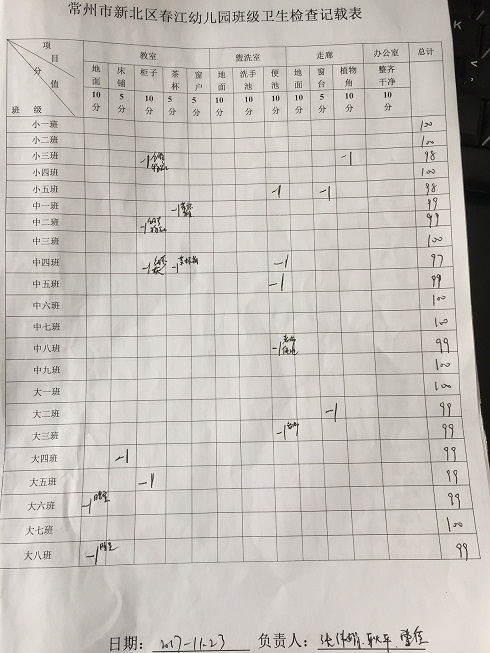 常州市新北区春江幼儿园班级卫生检查记载表
项目 教室 盥洗室 走廊 办公室 总计
分值 地面 床铺 柜子 茶杯 窗户 地面 洗手池 便池 地面 窗台 植物角 整齐干净
班级 10分 5分 10分 5分 5分 10分 10分 10分 10分 5分 10分 10分
小一班 100
小二班 100
小三班 -1 -1 98
小四班 100
小五班 -1 -1 98
中一班 -1 99
中二班 -1 99
中三班 100
中四班 -1 -1 -1 97
中五班 -1 99
中六班 100
中七班 100
中八班 -1 99
中九班 100
大一班 100
大二班 -1 99
大三班 -1 99
大四班 -1 99
大五班 -1 99
大六班 -1 99
大七班 100
大八班 -1 99
日期: 2017-11-23 负责人: